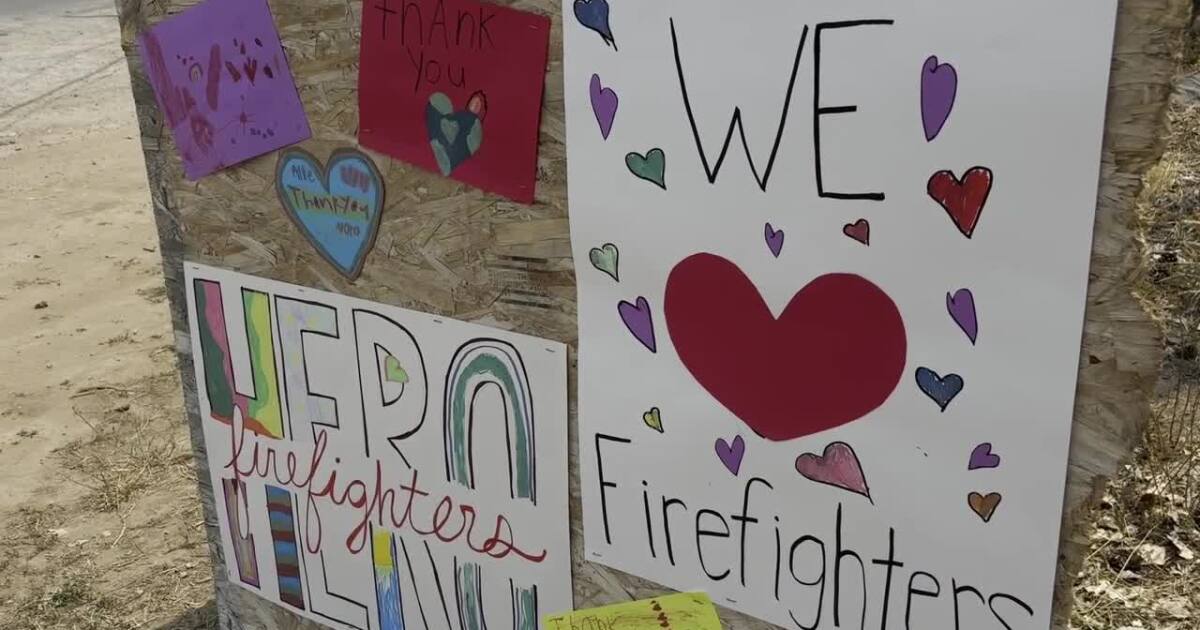 thAnk
You
WE
Thankyou
XOXO
HERO
firefighters
Firefighters
Thank